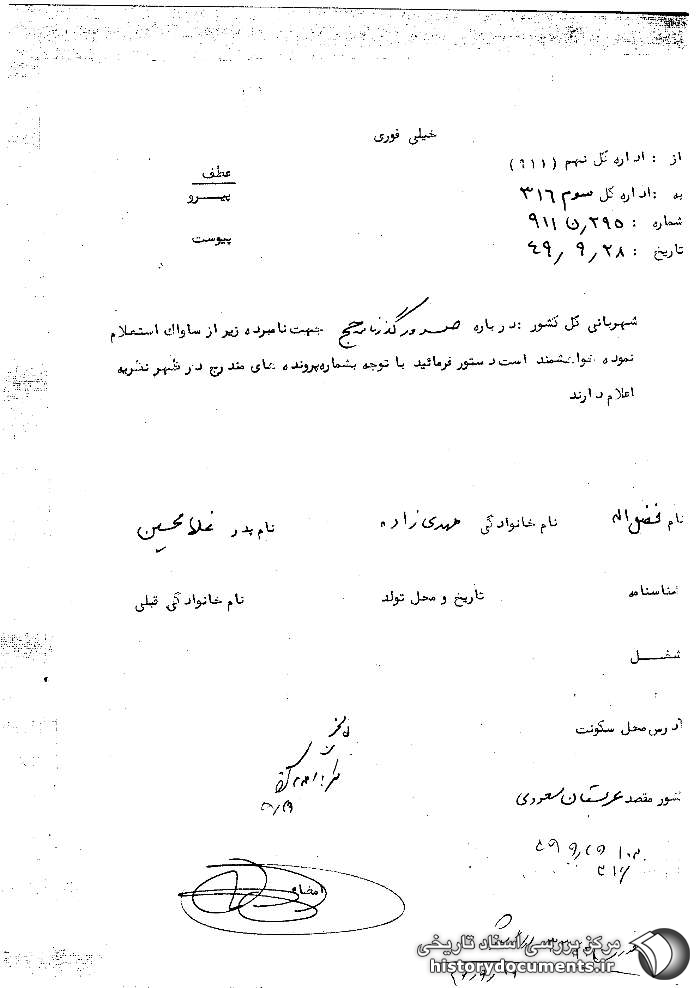 خیلی فوری
از : اداره کل نهم (۹۱۱)
به : اداره کل سوم ۳۱۶
شماره : ۲۹۵ر ن ۹۱۱
تاریخ : ۲۸ر ۹ر ۴۹
عطف
پیــرو
پیوست
شهربانی کل کشور : درباره صدور گذرنامه حج جهت نامبرده زیر از ساواك استعلام
نموده خواهشمند است دستور فرمائید با توجه بشماره پرونده های مندرج در ظهر نظریه
اعلام دارند
نام فضل اله نام خانوادگی مهدی زاده نام پدر غلامحسین
شناسنامه تاریخ و محل تولد نام خانوادگی قبلی
شغــل
آدرس محل سکونت
کشور مقصد عربستان سعودی
امضاء
۳۱۶
مرکز بررسی اسناد تاریخی
historydocuments.ir